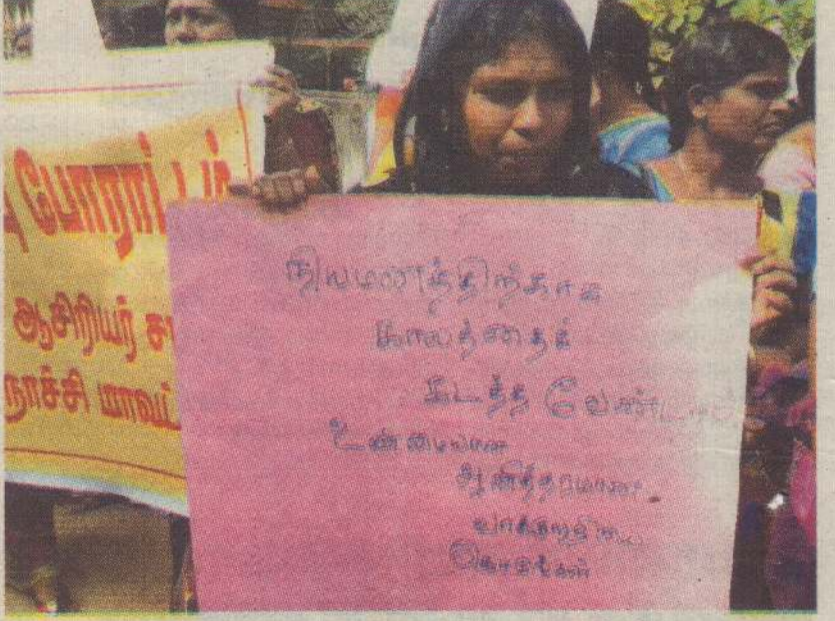 போராட்டம்
ஆசிரியர்
மாவட்
நியமனத்திற்காக
காலத்தைக்
கடத்த வேண்டாம்
உண்மையான
ஆணித்தரமான
வாக்குறுதியை
தாருங்கள்